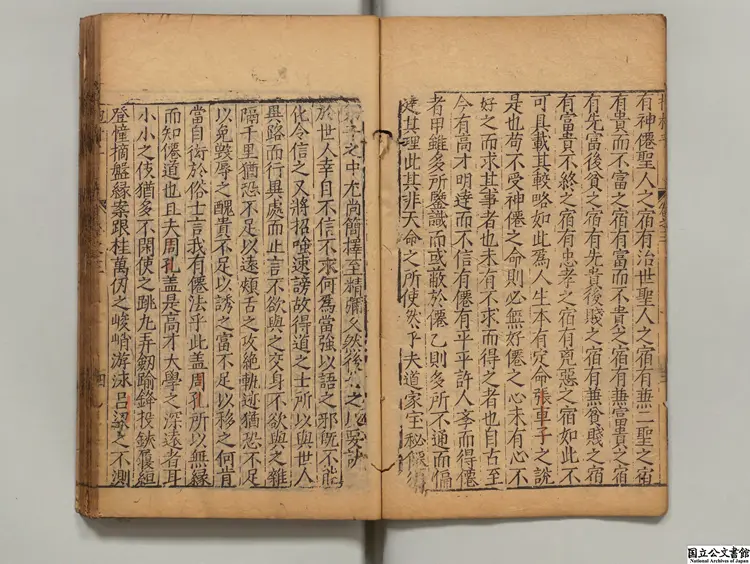 有神僊聖人之宿有治世聖人之宿有兼二聖之宿
有貴而不富之宿有富而不貴之宿有兼富貴之宿
有先富後貧之宿有先貴後賤之宿有兼貧賤之宿
有富貴不終之宿有忠孝之宿有兇惡之宿如此不
可具載其較略如此為人生本有定命張車子之說
是也苟不受神僊之命則必無好僊之心未有心不
好之而求其事者也未有不求而得之者也自古至
今有高才明達而不信有僊有平平許人李而得僊
者甲雖多所鑒識而或蔽於僊乙則多所不通而偏
達其理此其非天命之所使然乎夫道家宝秘僊術
弟子之中尤尚簡擇至精彌久然後
於世人幸自不信不求何為當強以語之邪既不能
化令信之又將招嗤速謗故得道之士所以與世人
異路而行異處而止言不欲與之交身不欲與之雜
隔千里猶恐不足以遠煩舌之攻絶軌迹猶恐不足
以免毀辱之醜貴不足以誘之富不足以移之何肯
當自衒於俗士言我有僊法乎此蓋周孔所以無緣
而知僊道也且夫周孔蓋是高才大學之深遠者耳
小小之伎猶多不閑使之跳九弄劒踰鋒投鋏履絙
登幢摘盤緣案跟桂萬仞之峻峭游泳呂梁之不測
四
国立公文書館
National Archives of Japan